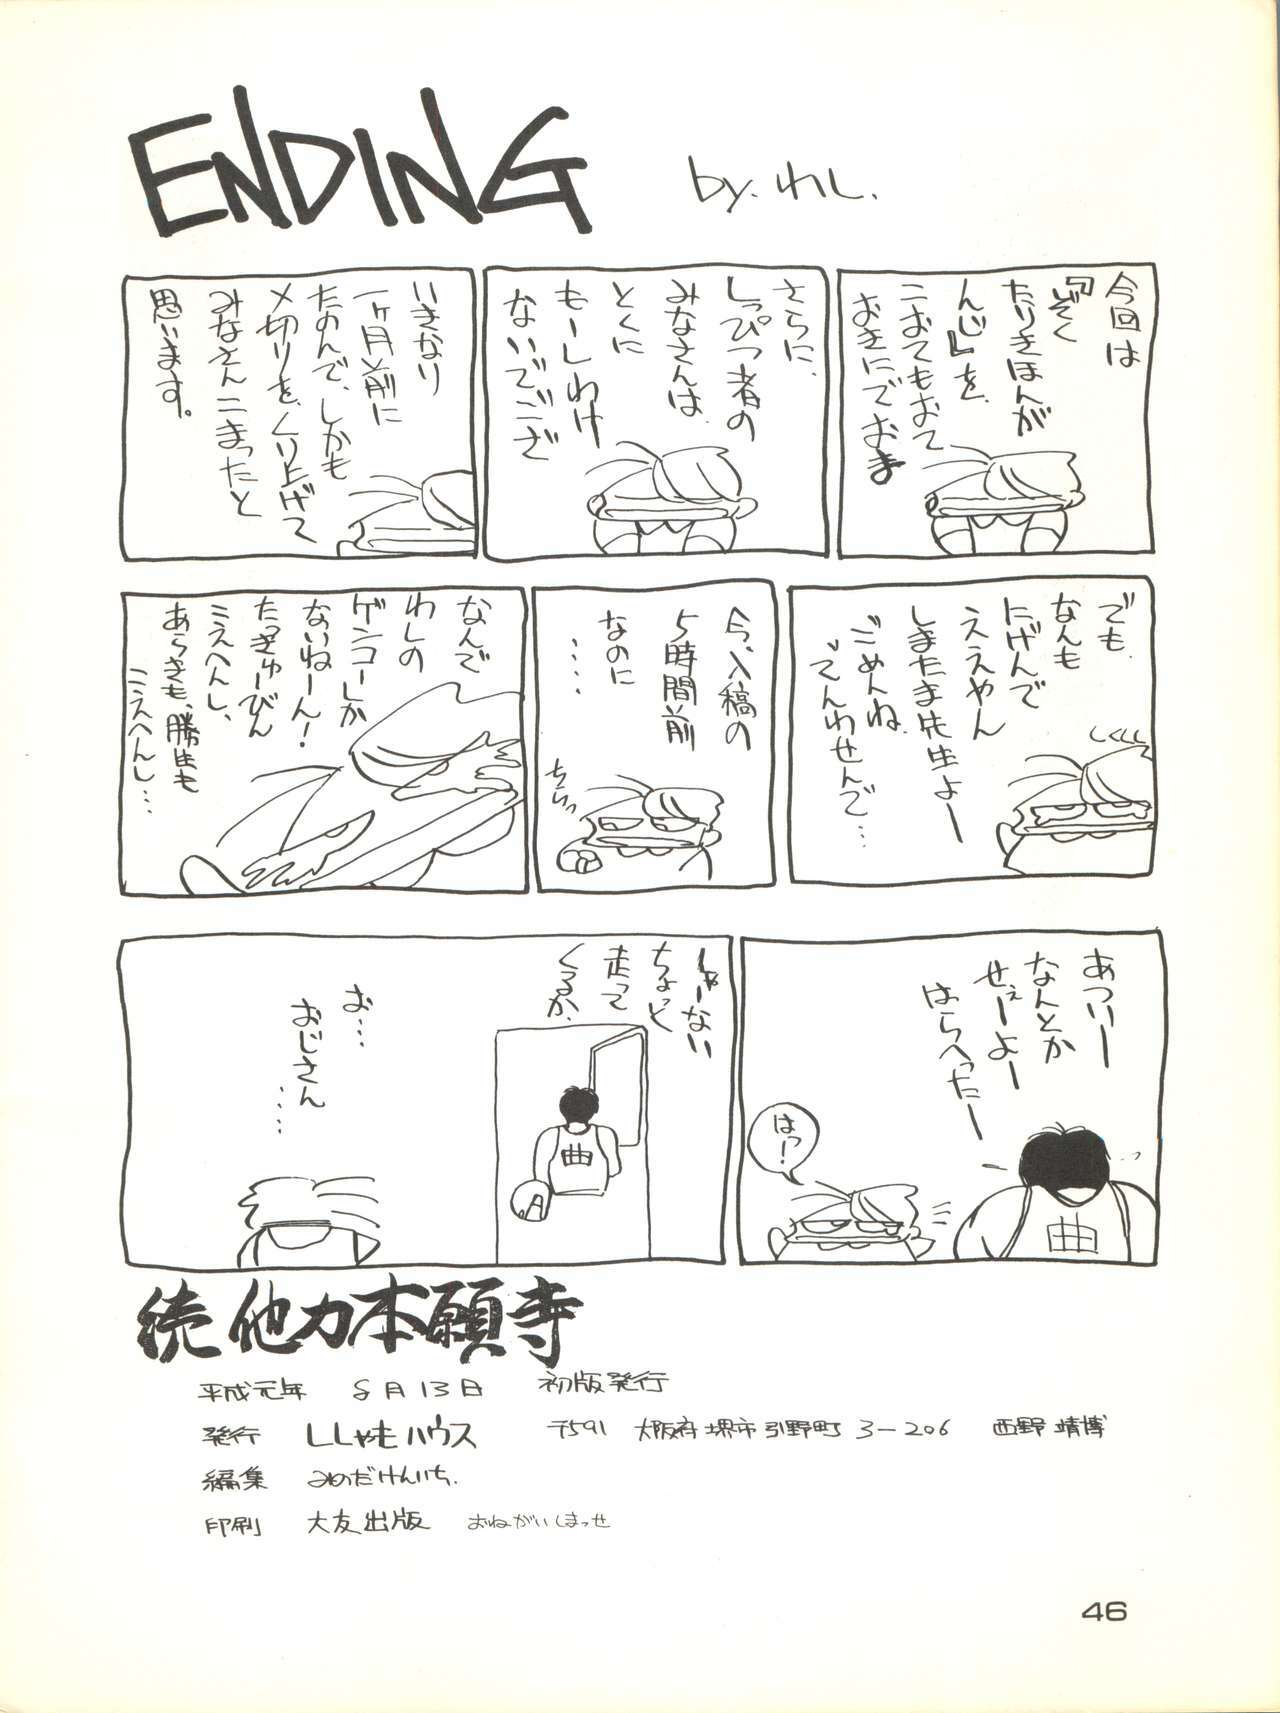 ENDING
by.わし.
今回は
『ぞく
たりきほんが
んじ』を、
こおてもおて
おきにでおま
さらに、
しっぴつ者の
みなさんは
とくに
もーしわけ
ないでござ
いきなり
一ヶ月前に
たのんで、しかも
〆切りを、くり上げて
みなさんこまったと
思います。
でも、
なんも
にげんで
ええやん
しまたま先生よー
ごめんね、
てんわせんで…
今、入稿の
5時間前
なのに
……
ちらっ
なんで
わしの
ゲンコーしか
ないねーん!
たっきゅーびん
こえへんし、
あらきも、勝生も
こえへんし…
あついー
なんとか
せぇーよー
はらへったー
はっ!
曲
しゃーない
ちょっと
走って
くるか、
曲
お…
おじさん
……
続 他力本願寺
平成元年 8月13日 初版発行
発行 ししゃもハウス 〒591 大阪府堺市引野町3-206 西野靖博
編集 みのだけんいち.
印刷 大友出版 おねがいしまっせ
46